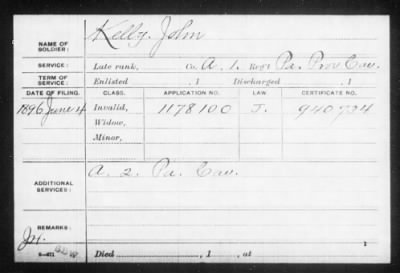 Kelly, John
NAME OF SOLDIER:
SERVICE: Late rank, Co. A. 1. Reg't Pa. Prov Cav.
TERM OF SERVICE: Enlisted , 1 Discharged , 1
DATE OF FILING. CLASS. APPLICATION NO. LAW. CERTIFICATE NO.
1896 June 4 Invalid, 1178100 J. 940734
Widow,
Minor,
A. 2. Pa. Cav.
ADDITIONAL SERVICES:
REMARKS:
Died , 1 , at